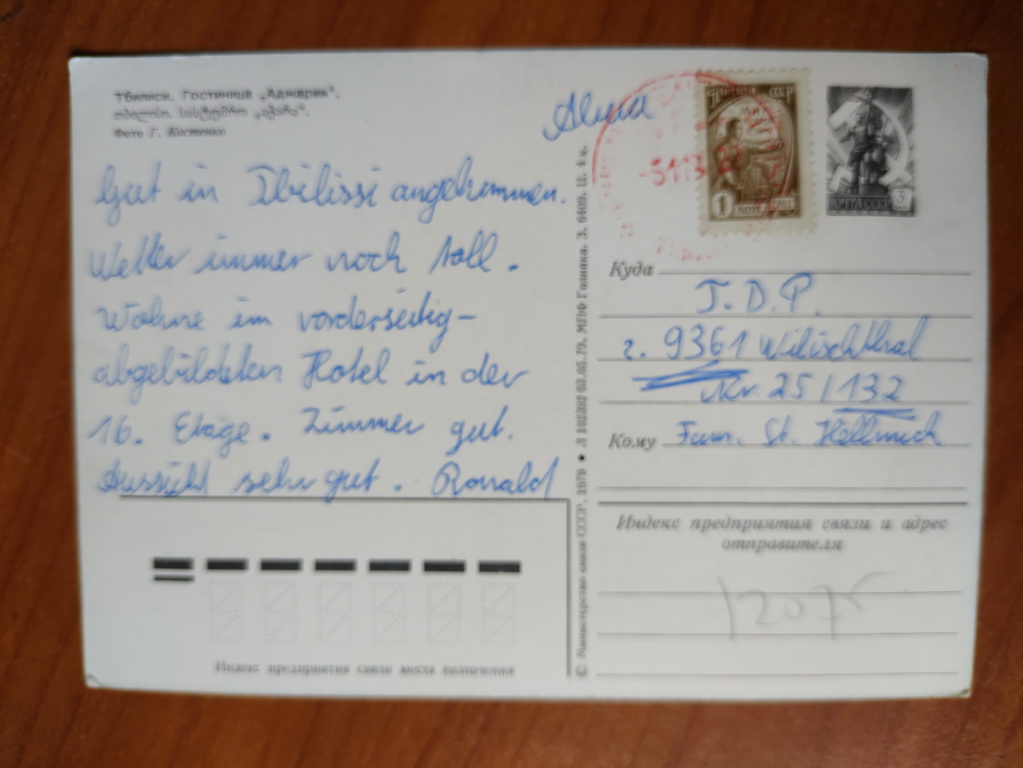 Тбилиси. Гостиница „Аджария“.
თბილისი. სასტუმრო „აჭარა“.
Фото Г. Костенко
Gut in Tbilissi angekommen.
Wetter immer noch toll.
Wohne im vorderseitig-
abgebildeten Hotel in der
16. Etage. Zimmer gut.
Aussicht sehr gut. Ronald
Индекс предприятия связи места назначения
© Министерство связи СССР. 1979 • Л 102392 03.05.79. МПФ Гознака. З. 6409. Ц. 4 к.
ПОЧТА СССР
1
1961
ПОЧТА СССР
3
Куда
г. 9361 Wilischthal
Nr 25 / 132
Кому Fam. St. Hellmich
Индекс предприятия связи и адрес
отправителя
12075